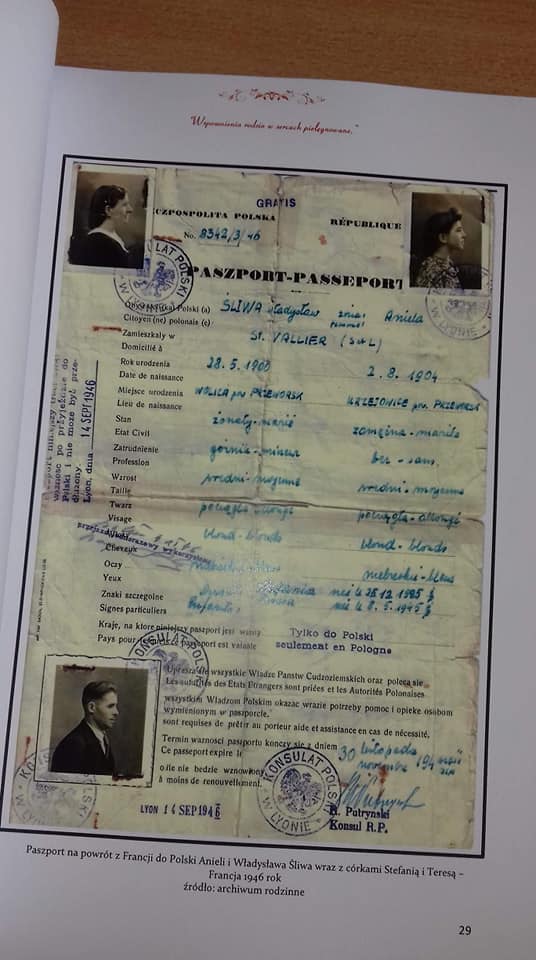 "Wspomnienia rodzin w sercach pielęgnowane."
GRATIS
CZPOSPOLITA POLSKA RÉPUBLIQUE
No. 8342/3/46
PASZPORT-PASSEPORT
Obywatel(ka) Polski (a) ŚLIWA Władysław żona Aniela
Citoyen (ne) polonais (e)
Zamieszkały w ST. VALLIER (S et L)
Domicilié à
Rok urodzenia 28.5.1900 2.8.1904
Date de naissance
Miejsce urodzenia WOLICA pow. PRZEWORSK KRZECZOWICE pow. PRZEWORSK
Lieu de naissance
Stan żonaty-marié zamężna-mariée
Etat Civil
Zatrudnienie górnik-mineur bez - sans
Profession
Wzrost średni-moyenne średni-moyenne
Taille
Twarz pociągła-allongé pociągła-allongé
Visage
blond-blonds blond-blonds
Cheveux
Oczy niebieskie-bleus niebieskie-bleus
Yeux
Znaki szczególne
Signes particuliers
Kraje, na które niniejszy paszport jest ważny Tylko do Polski
Pays pour passeport est valable seulement en Pologne
Uprasza się wszystkie Władze Państw Cudzoziemskich oraz poleca się
Les autorités des Etats Etrangers sont priées et les Autorités Polonaises
wszystkim Władzom Polskim okazać wrazie potrzeby pomoc i opiekę osobom
wymienionym w paszporcie.
sont requises de prêter au porteur aide et assistance en cas de nécessité.
Termin ważności paszportu kończy się z dniem 30 listopada
Ce passeport expire le novembre 194
o ile nie będzie wznowiony
à moins de renouvellement.
LYON 14 SEP 1946
KONSULAT POLSKI
W LYONIE
Konsul R.P.
port niniejszy traci
ważność po przyjeździe do
Polski i nie może być prze-
dłużony.
Lyon, dnia 14 SEPT 1946
Paszport na powrót z Francji do Polski Anieli i Władysława Śliwa wraz z córkami Stefanią i Teresą –
Francja 1946 rok
źródło: archiwum rodzinne
29